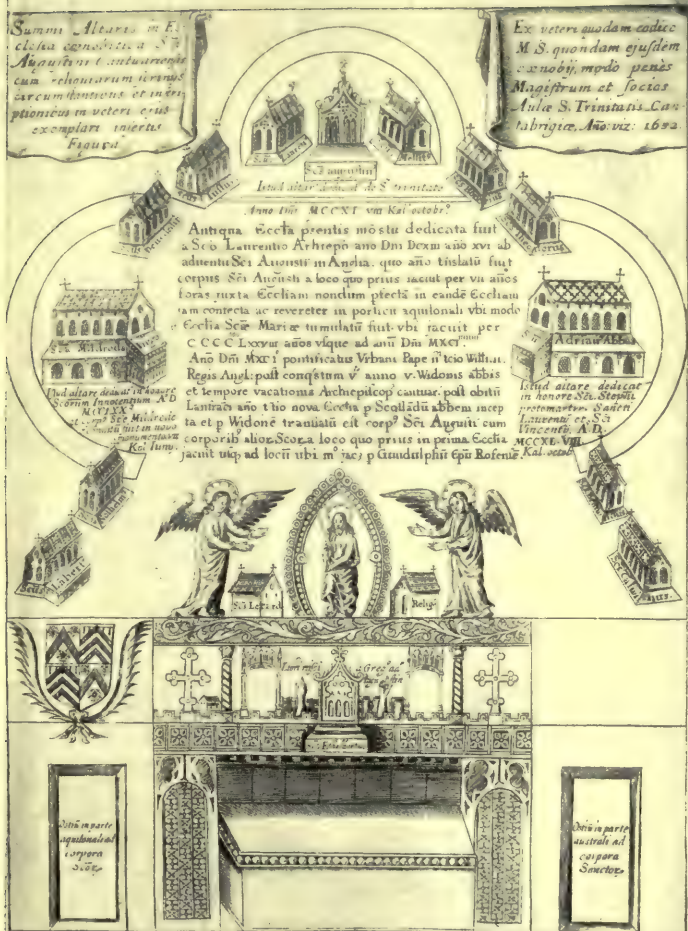 Summi Altaris in Ec
clesia cœnobitica Sći
Augustini Cantuariensis
cum reliquiarum scriniis
circumstantibus et inscri
ptionibus in veteri ejus
exemplari insertis
Figura
Ex veteri quodam codice
M S. quondam ejusdem
cœnobij, modo penès
Magistrum et socios
Aulæ S. Trinitatis Can
tabrigiæ, Año: viz: 1652
Sći augustini
Istud altar dedicat de S trinitate
Anno Dñi MCCXI vm Kal. octobr.
Antiqua Eccła pṡentis mōstu dedicata fuit
a Sćo Laurentio Arħiepō ano Dm Dcxiii año xvi ab
adventu Sći Augusti in Anglia. quo año tñslatū fuit
corpus Sći Augusti a loco quo prius iacuit per vii años
foras juxta Eccłiam nondum pfectā in eandē Eccłiam
iam confecta ac revereter in porticu aquilonali vbi modo
e Eccłia Sćæ Mariæ tumulatū fuit vbi iacuit per
C C C C Lxxviii años vsque ad anū Dñi MXCI
Año Dñi MXCI pontificatus Vrbani Pape ii tcio Willi ii.
Regis Angl: post conqstum v anno v. Widonis abbis
et tempore vacationis Archiepiscop cantuar. post obitū
Lanfraci año ttio nova Eccłia p Scollādū abbem incep
ta et p Widonē translatū est corp Sći Augusti cum
corporib alior Scor a loco quo prius in prima Eccłia
jacuit usq ad locū ubi m jac; p Gundulphū Epū Rofense
Sća Mildreda
Istud altare dedicat in honore
Scorum Innocentum A D
Sće Mildrede
fuit in novo
Kal Iunii
Adrian Abb
Istud altare dedicat
in honore Sći. Stephi
protomartir. Sancti
Laurentii et Sći
Vincentii A. D.
MCCXL VIII
Kal. octob
Sći Letard
Reliq
Ostiū in parte
aquilonali ad
corpora
Scōr
Ostiū in parte
australi ad
corpora
Sanctor